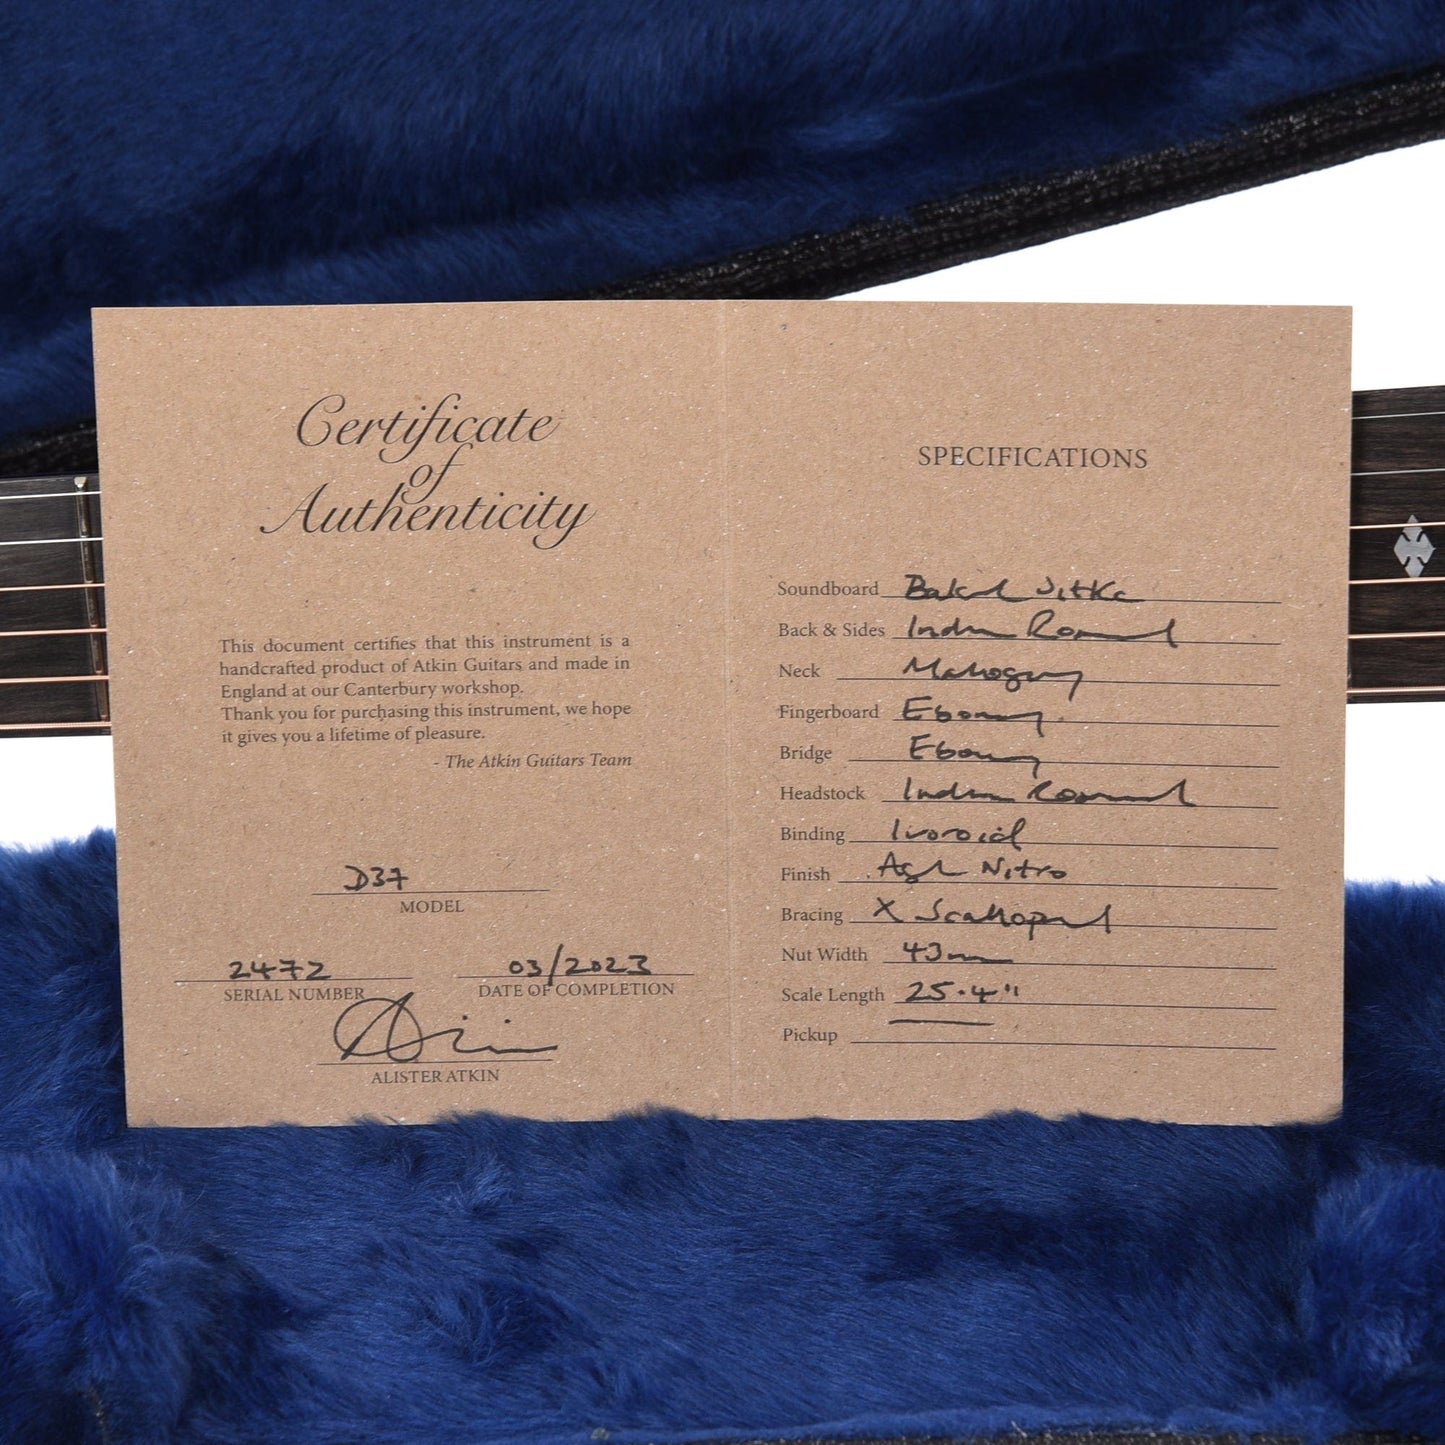 Certificate
of
Authenticity
This document certifies that this instrument is a
handcrafted product of Atkin Guitars and made in
England at our Canterbury workshop.
Thank you for purchasing this instrument, we hope
it gives you a lifetime of pleasure.
- The Atkin Guitars Team
D37
MODEL
2472
SERIAL NUMBER
03/2023
DATE OF COMPLETION
Atkin
ALISTER ATKIN
SPECIFICATIONS
Soundboard Baked Sitka
Back & Sides Indian Rosewood
Neck Mahogany
Fingerboard Ebony
Bridge Ebony
Headstock Indian Rosewood
Binding Ivoroid
Finish Aged Nitro
Bracing X Scalloped
Nut Width 43mm
Scale Length 25.4"
Pickup —